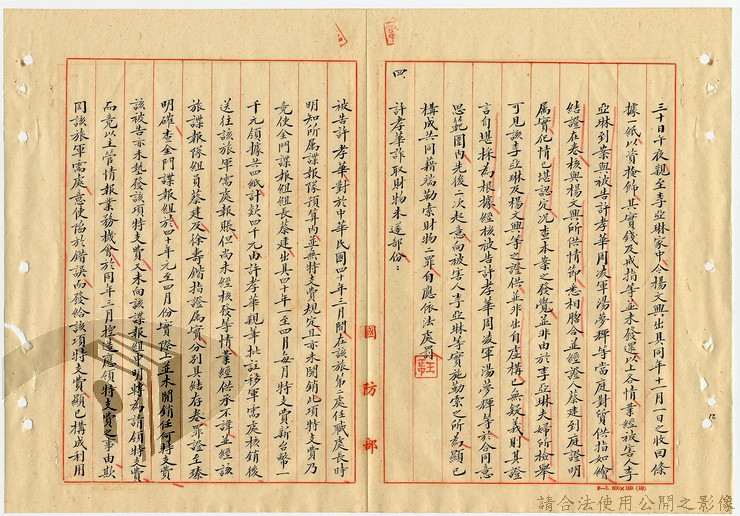 三十日午夜親至李亞琳家中令楊文興出具同年十一月一日之收回條
據一紙以資掩飾其實錢及戒指等並未發還以上各情業經被害人李
亞琳到案與被告許孝華周凌軍湯夢輝等當庭對質供指如繪
結證在卷核與楊文興所供情節悉相脗合並經證人蔡建到庭證明
屬實犯情已堪認定況查本案之發覺並非由於李亞琳夫婦所檢舉
可見該李亞琳及楊文興等之證供並非出自虛構已無疑義則其證
言自堪採為根據經核被告許孝華周凌軍湯夢輝等於合同意
思範圍內先後二次起意向被害人李亞琳等實施勒索之所為顯已
構成共同藉端勒索財物二罪自應依法處罰
四、許孝華詐取財物未遂部份：
被告許孝華對於中華民國四十年三月間在該旅第二處任職處長時
明知所屬諜報隊預算內並無特支費規定且亦未開銷此項特支費乃
竟使金門諜報組組長蔡建出具四十年一至四月每月特支費新台幣一
千元領據共四紙計款四千元由許孝華親筆批註移軍需處核銷後
送往該旅軍需處報賬但尚未經核發等情業經供承不諱並經該
旅諜報隊組員蔡建及徐壽鍇指證屬實分別具結存卷罪證至臻
明確查金門諜報組於四十年元至四月份實際上並未開銷任何特支費
該被告亦未墊發該項特支費又未向該諜報組申明將為請領特支費
而竟以主管情報業務機會於同年三月捏造應領特支費之事由欺
罔該旅軍需處意使陷於錯誤而發給該項特支費顯已構成利用
國防部
請合法使用公開之影像